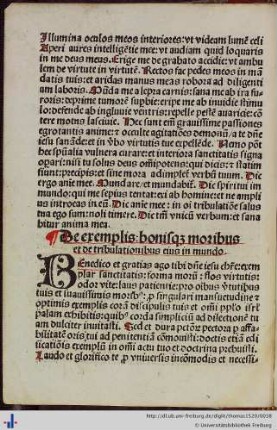 Illumina oculos meos interiores: vt videam lumē celi
Aperi aures intelligētie mee: vt audiam quid loquaris
in me deus meus. Erige me de grabato accidie: vt ambu
lem de virtute in virtutē. Rectos fac pedes meos in mā
datis tuis: et aridas manus meas robora ad diligenti
am laboris. Mūda me a lepra carnis: sana me ab ira fu
roris: deprime tumorē supbie: eripe me ab inuidie stimu
lo: defende ab ingluuie ventris: repelle pestē auaricie: cō
tere motus lasciuie. Hec sunt em̄ grauissime passiones
egrotantis anime: et occulte agitatiōes demonū/ a te dn̄e
iesu sanāde: et in v̄bo virtutis tue expellēde. Nemo pōt
hec sp̄ualia vulnera curare: et interiora sanctitatis signa
opari: nisi tu solus deus oīpotens: qui dicis: et statim
fiunt: precipis: et sine mora adimplēt verbū tuum. Dic
ergo anime mee. Mundare: et mundabit̄. Dic spiritui im
mundo: qui me sepius tentat: exi ab homine: et ne ampli
us introeas in eū. Dic anie mee: in oī tribulatiōe salus
tua ego sum: noli timere. Dic tm̄ vnicū verbum: et sana
bitur anima mea.
De exemplis: bonisq3 moribus
et de tribulationibus eius in mundo.
BEnedico et gratias ago tibi dn̄e iesu xp̄e: exem
plar sanctitatis: forma morū: flos virtutis:
odor vite: laus patientie: pro oībus v̄tutibus
tuis et suauissimis morib9: p singulari mansuetudine et
optimis exemplis corā discipulis tuis et omni pplo isrl
palam exhibitis: quib9 corda simpliciū ad dilectionē tu
am dulciter inuitasti. Sed et dura petrae pectora p affa
bilitatē oris tui ad penitentiā cōmouisti: doctis etiā edi
ficatiōis exemplū in omni actu tuo et doctrina prebuisti.
Laudo et glorifico te p vniuersis incōmodis et necessi
http://dl.ub.uni-freiburg.de/diglit/thomas1520/0038
© Universitätsbibliothek Freiburg